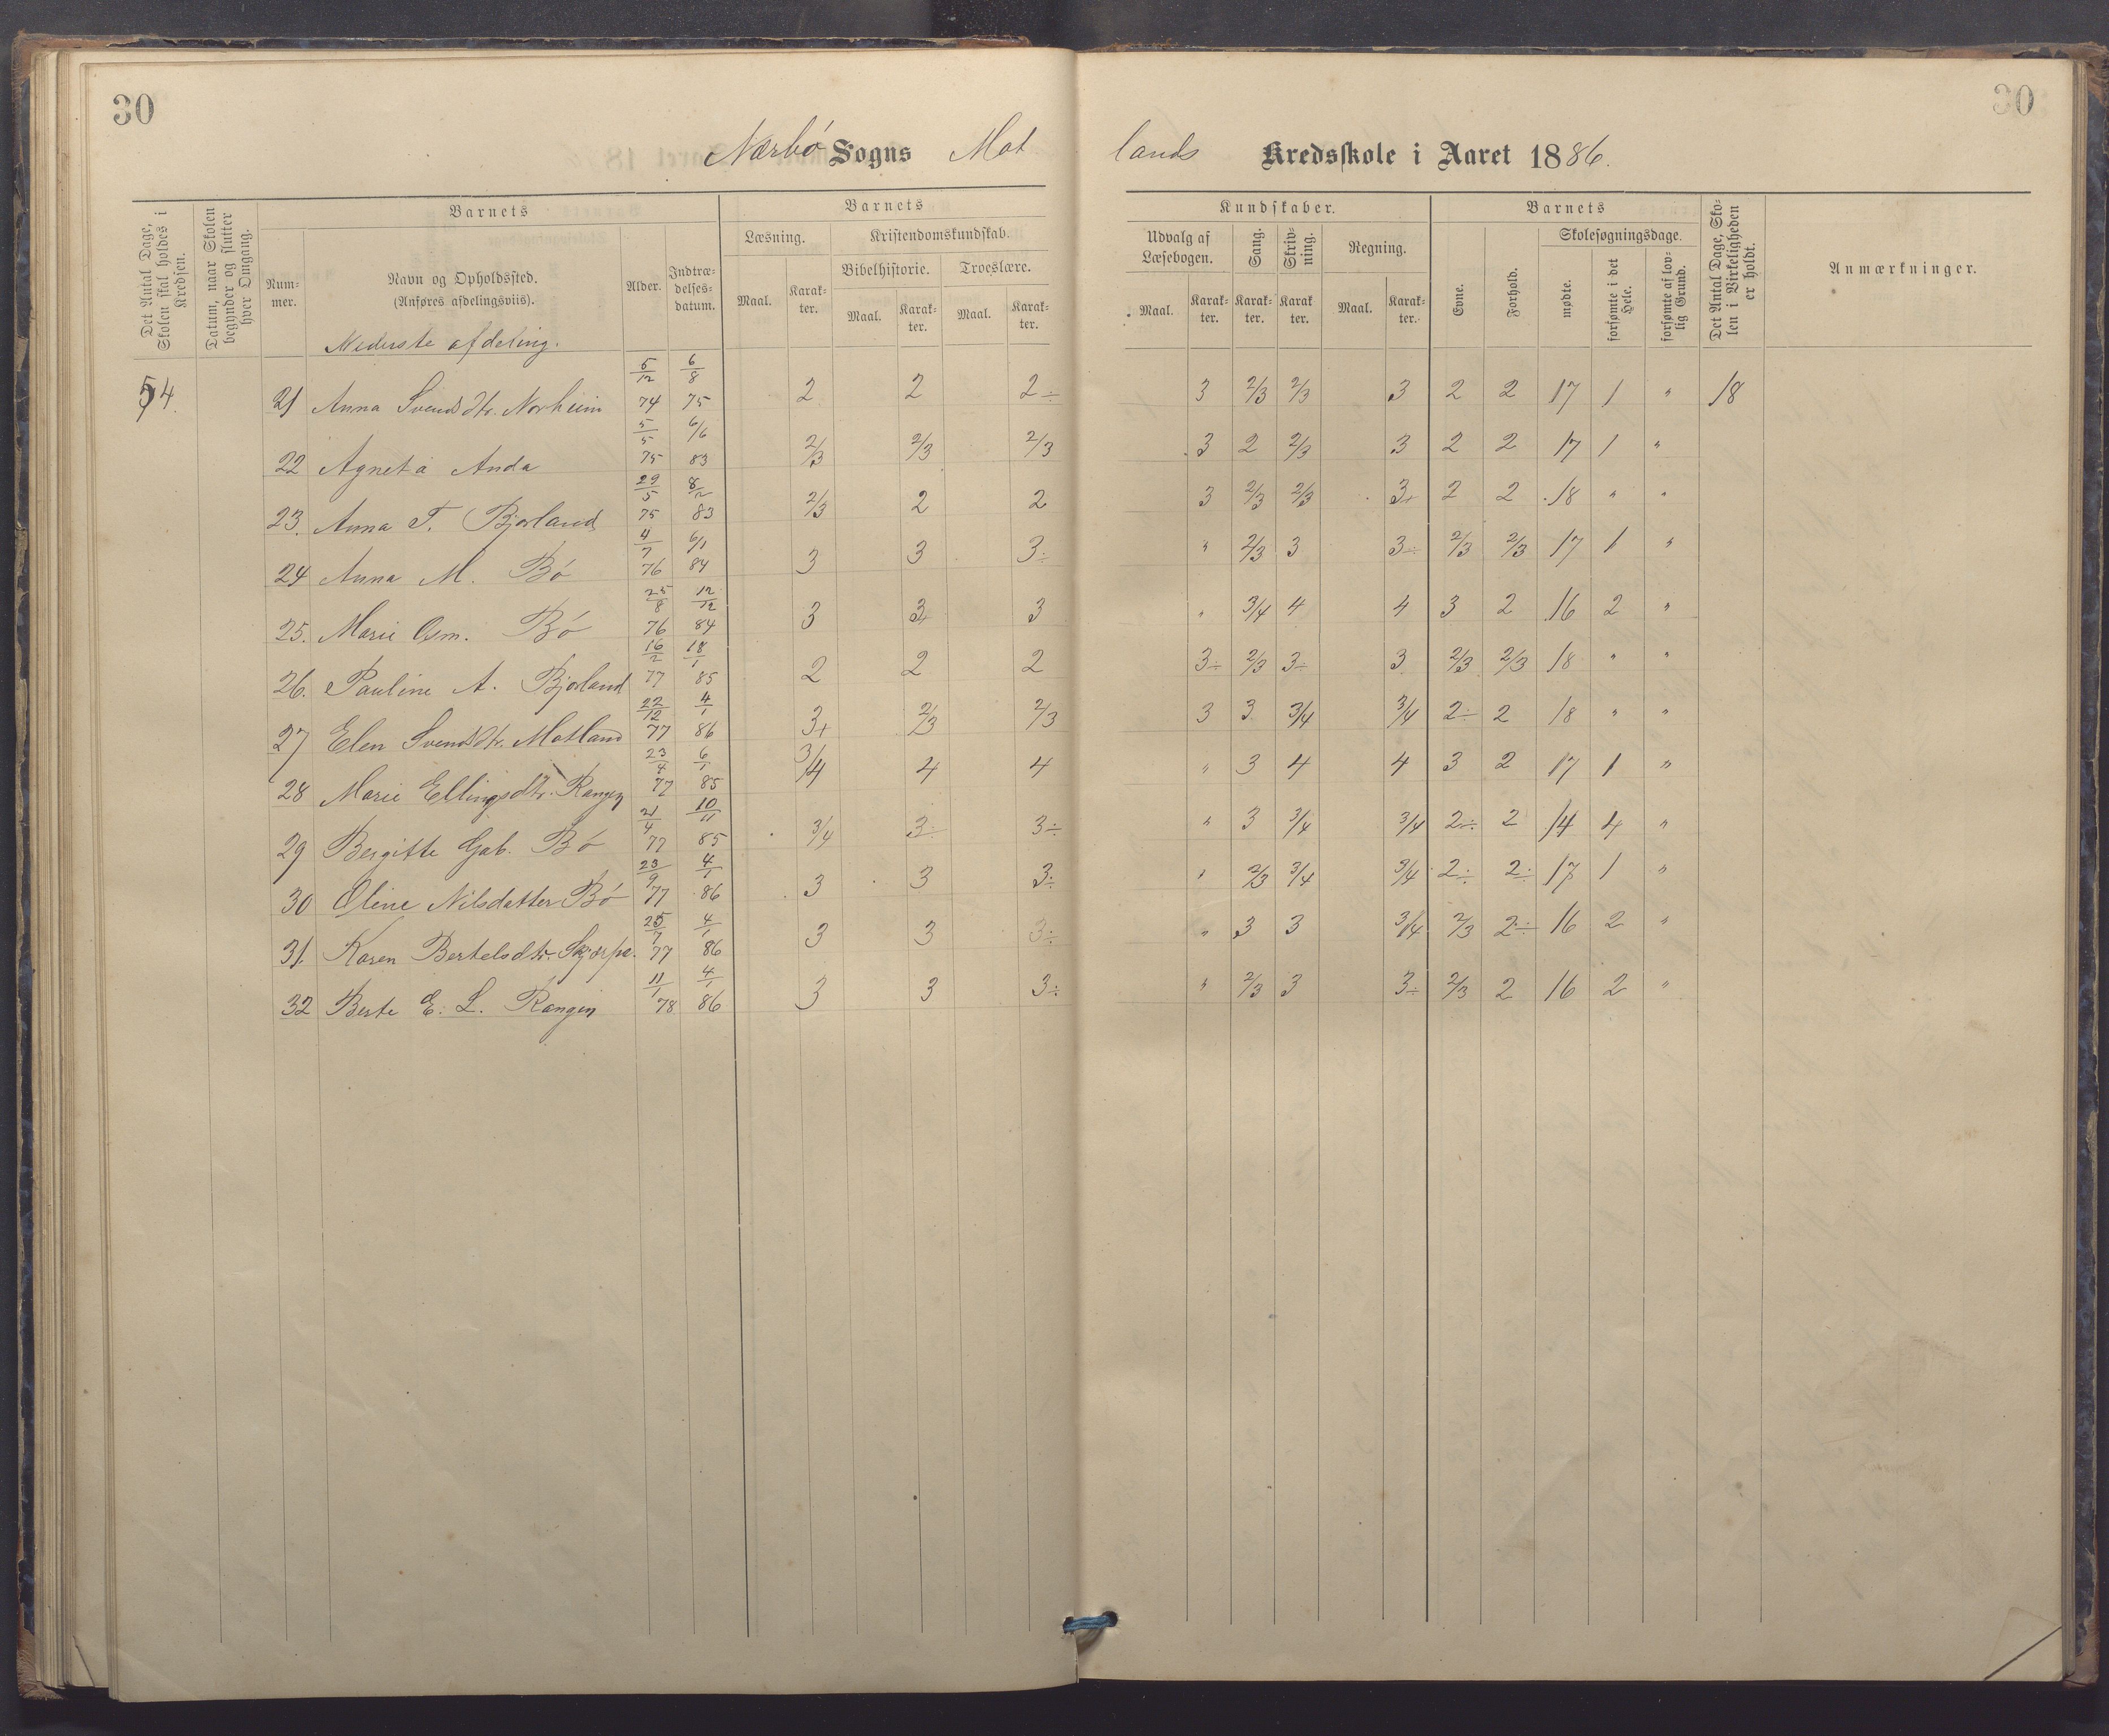 30
30
Nærbö Sogns Mot
lands Kredsskole i Aaret 1886.
Det Antal Dage, Skolen skal holdes i Kredsen.
Datum, naar Skolen begynder og slutter hver Omgang.
Barnets
Num-mer.
Navn og Opholdssted.
(Anføres afdelingsviis).
Alder.
Indtræ-delses-datum.
Barnets
Læsning.
Maal.
Karak-ter.
Kristendomskundskab.
Bibelhistorie.
Maal.
Karak-ter.
Troeslære.
Maal.
Karak-ter.
Kundskaber.
Udvalg af Læsebogen.
Maal.
Karak-ter.
Sang.
Karak-ter.
Skriv-ning.
Karak ter.
Regning.
Maal.
Karak-ter.
Barnets
Evne.
Forhold.
Skolesøgningsdage.
mødte.
forsømte i det Hele.
forsømte af lov-lig Grund.
Det Antal Dage, Sko-len i Virkeligheden er holdt.
Anmærkninger.
Nederste afdeling.
54. 21 Anna Svendsdtr. Norheim 5/12 74 6/8 75 2 2 2÷ 3 2/3 2/3 3 2 2 17 1 " 18
22 Agneta Anda 5/5 75 6/6 83 2/3 2/3 2/3 3 2 2/3 3 2 2 17 1 "
23. Anna T. Bjorland 29/5 75 8/12 83 2/3 2 2 3 2/3 2/3 3+ 2 2 18 " "
24 Anna M. Bö 4/7 76 6/1 84 3 3 3÷ " 2/3 3 3÷ 2/3 2/3 17 1 "
25. Marie Osm. Bö 25/8 76 12/12 84 3 3+ 3 " 3/4 4 4 3 2 16 2 "
26. Pauline A. Bjorland 16/2 77 18/1 85 2 2 2 3÷ 2/3 3÷ 3 2/3 2/3 18 " "
27 Elen Svendsdtr. Motland 22/12 77 4/1 86 3+ 2/3 2/3 3 3 3/4 3/4 2÷ 2 18 " "
28 Marie Ellingsdtr. Rangen 23/4 77 6/1 85 3/4 4 4 " 3 4 4 3 2 17 1 "
29 Bergitte Gab. Bö 21/4 77 10/11 85 3/4 3÷ 3÷ " 3 3/4 3/4 2÷ 2 14 4 "
30 Oline Nilsdatter Bö 23/9 77 4/1 86 3 3 3÷ " 2/3 3/4 3/4 2÷ 2÷ 17 1 "
31. Karen Bertelsdtr. Skjærpe. 25/7 77 4/1 86 3 3 3÷ " 3 3 3/4 2/3 2÷ 16 2 "
32 Berte E. L. Rangen 11/1 78 4/1 86 3 3 3÷ " 2/3 3 3÷ 2/3 2 16 2 "